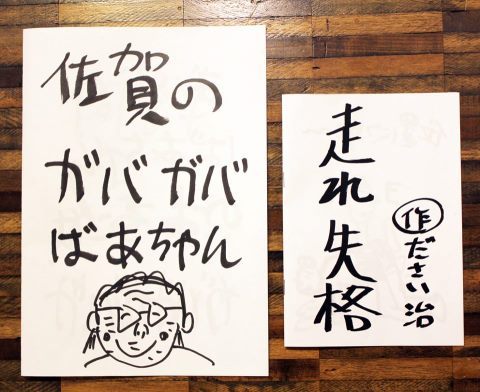 佐賀の
ガバガバ
ばあちゃん
走れ失格
作ださい治